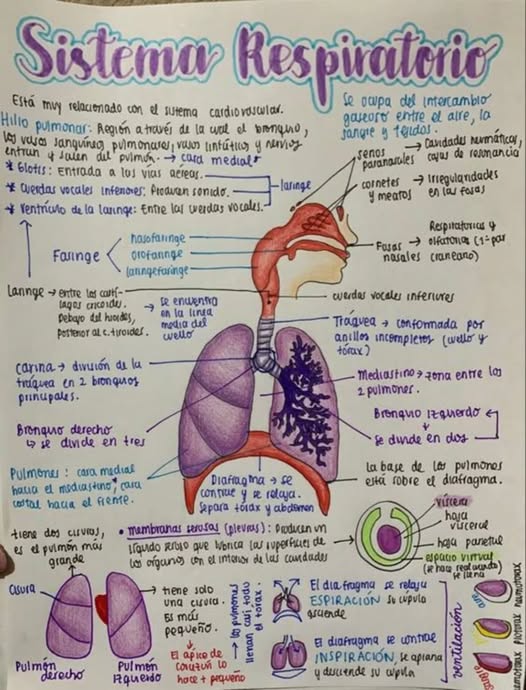 Sistema Respiratorio
Está muy relacionado con el sistema cardiovascular.
Hilio pulmonar: Región a través de la cual el bronquio,
los vasos sanguíneos pulmonares, vasos linfáticos y nervios
entran y salen del pulmón. → cara medial
* Glotis: Entrada a las vías aéreas.
* Cuerdas vocales inferiores: Producen sonido.
* Ventrículo de la laringe: Entre las cuerdas vocales.
laringe
Se ocupa del intercambio
gaseoso entre el aire, la
sangre y tejidos.
senos
paranasales
→ Cavidades neumáticas,
cajas de resonancia
cornetes
y meatos
→ Irregularidades
en las fosas
Fosas
nasales
→ Respiratorias y
olfatorias (1º par
craneano)
Faringe
nasofaringe
orofaringe
laringofaringe
Laringe → entre los cartí-
lagos cricoides.
Debajo del hioides,
Posterior al c. tiroides.
→ Se encuentra
en la línea
media del
cuello
cuerdas vocales inferiores
Tráquea → conformada por
anillos incompletos (cuello y
tórax)
Carina → división de la
tráquea en 2 bronquios
principales.
Mediastino → zona entre los
2 pulmones.
Bronquio derecho
↳ se divide en tres
Bronquio Izquierdo
↓
se divide en dos
Pulmones: cara medial
hacia el mediastino, cara
costal hacia el frente.
Diafragma → se
contrae y se relaja.
Separa tórax y abdomen
la base de los pulmones
está sobre el diafragma.
tiene dos cisuras,
es el pulmón más
grande
• membranas serosas (pleuras): Producen un
líquido seroso que lubrica las superficies de
los órganos con el interior de las cavidades
víscera
hoja
visceral
hoja parietal
espacio virtual
se llena
cisura
Pulmón
derecho
Pulmón
Izquierdo
→ tiene solo
una cisura.
Es más
pequeño.
El ápice de
corazón lo
hace + pequeño
→ los pulmones
llenan casi todo
el tórax.
El diafragma se relaja
ESPIRACIÓN su cúpula
asciende
El diafragma se contrae
INSPIRACIÓN, se aplana
y desciende su cúpula
ventilación
aire
neumotórax
sangre